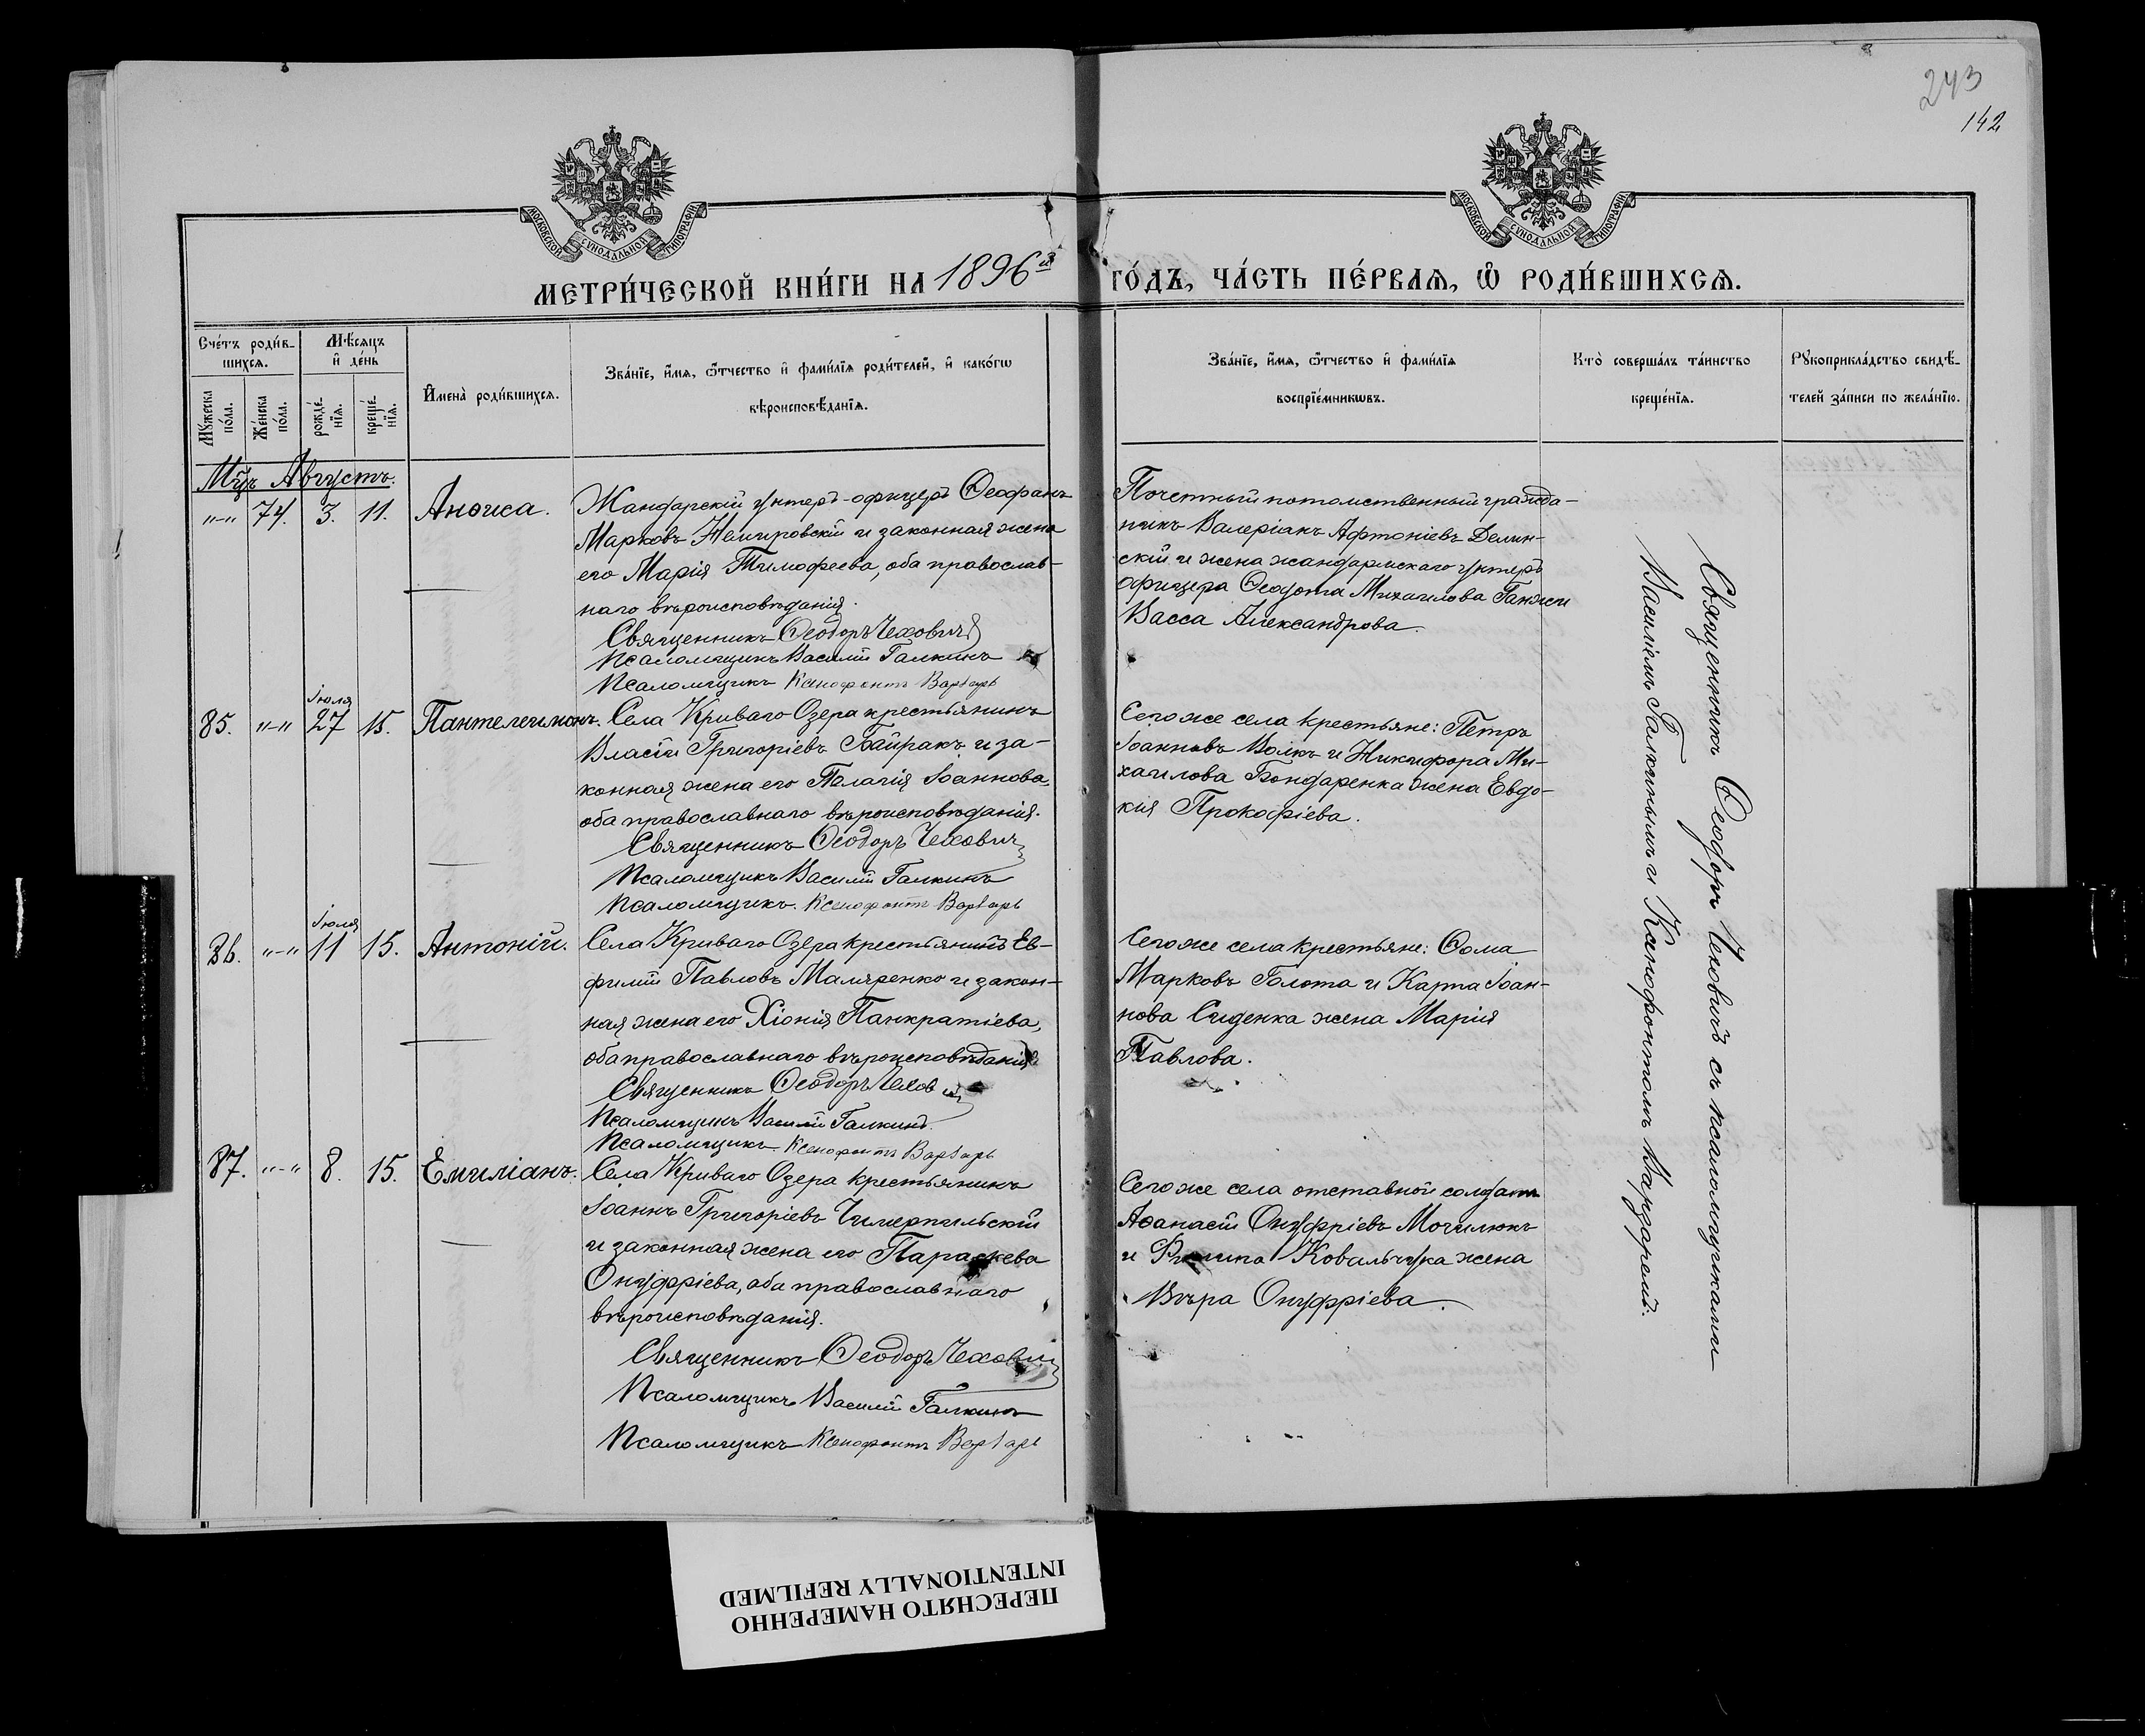 243
142
МОСКОВСКОЙ СУНОДАЛЬНОЙ ТИПОГРАФИИ
МОСКОВСКОЙ СУНОДАЛЬНОЙ ТИПОГРАФИИ
МЕТРИ́ЧЕСКОЙ КНИ́ГИ НА 1896й ГО́ДЪ, ЧА́СТЬ ПЕ́РВАѦ, Ѿ РОДИ́ВШИХСѦ.
Сче́тъ роди́в-
шихся.
Мѣ́сяцъ
и҆ де́нь
Му́жеска по́ла.
Же́нска по́ла.
рожде́-нїя.
креще́-нїя.
И҆мена̀ роди́вшихся.
Зва́нїе, и҆́мя, ѻ҆́тчество и҆ фами́лїя роди́телей, и҆ како́гѡ
вѣроисповѣ́данїя.
Зва́нїе, и҆́мя, ѻ҆́тчество и҆ фами́лїя
воспрїе́мникѡвъ.
Кто̀ соверша́лъ та́инство
креще́нїя.
Рꙋкоприкла́дство свидѣ́-
телей за́писи по жела́нїю.
Мцъ Августъ.
"-" 74. 3. 11. Анѳиса.
Жандарскій унтеръ-офицеръ Ѳеофанъ
Марковъ Немировскій и законная жена
его Марія Тимофеева, оба православ-
наго вѣроисповѣданія.
Священникъ Ѳеодоръ Чеховичъ
Псаломщикъ Василій Галкинъ
Псаломщикъ Ксенофонтъ Варзарь
Почетный потомственный гражда-
никъ Валеріанъ Афтоніевъ Делин-
скій и жена жандармскаго унтеръ
офицера Ѳеодота Михаилова Ганжи
Васса Александрова.
Іюля
85. "-" 27 15. Пантелеимонъ.
Села Криваго Озера крестьянинъ
Власій Григоріевъ Байракъ и за-
конная жена его Пелагія Іоаннова,
оба православнаго вѣроисповѣданія.
Священникъ Ѳеодоръ Чеховичъ
Псаломщикъ Василій Галкинъ
Псаломщикъ Ксенофонтъ Варзарь
Сего же села крестьяне: Петръ
Іоанновъ Волкъ и Никифора Ми-
хаилова Бондаренка жена Евдо-
кія Прокофіева.
Іюля
86. "-" 11 15. Антоній.
Села Криваго Озера крестьянинъ Ев-
фимій Павловъ Маляренко и закон-
ная жена его Хіонія Панкратіева,
оба православнаго вѣроисповѣданія
Священникъ Ѳеодоръ Чехович
Псаломщикъ Василій Галкинъ.
Псаломщикъ Ксенофонтъ Варзарь
Сего же села крестьяне: Ѳома
Марковъ Голота и Карпа Іоан-
нова Сиденка жена Марія
Павлова.
87. "-" 8. 15. Емиліанъ.
Села Криваго Озера крестьянинъ
Іоаннъ Григоріевъ Чимерпильскій
и законная жена его Параскева
Онуфріева, оба православнаго
вѣроисповѣданія.
Священникъ Ѳеодоръ Чехович
Псаломщикъ Василій Галкинъ
Псаломщикъ Ксенофонтъ Варзарь
Сего же села отставной солдатъ
Аѳанасій Онуфріевъ Могилюкъ
и Ковальчука жена
Вѣра Онуфріева.
Священникъ Ѳеодоръ Чеховичъ съ псаломщиками
Василіемъ Галкинымъ и Ксенофонтомъ Варзаремъ.
ПЕРЕСНЯТО НАМЕРЕННО
INTENTIONALLY REFILMED